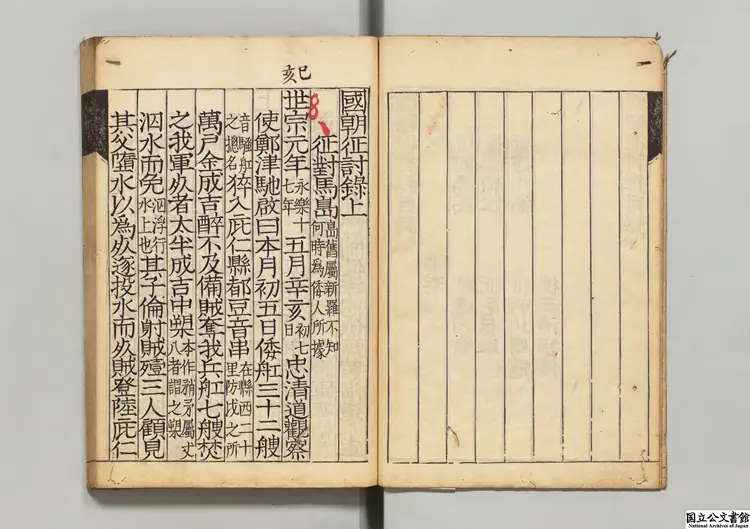 國朝征討錄上
8、
征對馬島島舊屬新羅不知何時爲倭人所據
己亥
世宗元年永樂十七年五月辛亥初七日忠清道觀察
使鄭津馳啟曰本月初五日倭舡三十二艘
音騷舟之摠名猝入庇仁縣都豆音串在縣西二十里防戍之所
萬戶金成吉醉不及備賊奪我兵舡七艘焚
之我軍死者太半成吉中槊本作矟矛屬丈八者謂之槊
泅水而免泅浮行水上也其子倫射賊殪三人顧見
其父墮水以爲死遂投水而死賊登陸庇仁
国立公文書館
National Archives of Japan